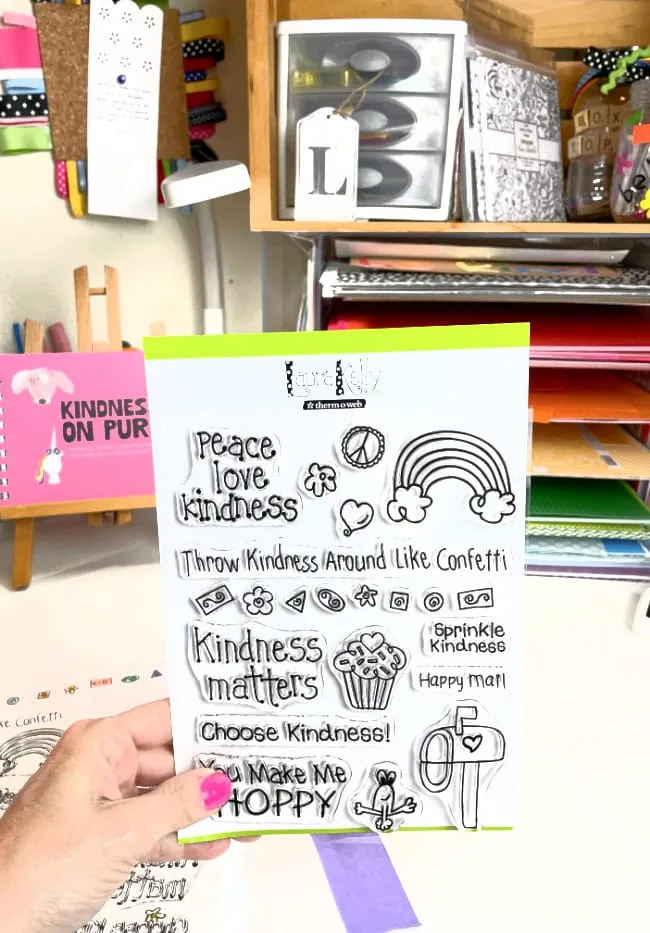 L
BOX
TOP
be
KINDNES
ON PUR
Laura Kelly
thermoweb
Peace
love
kindness
Throw Kindness Around Like Confetti
Kindness
matters
Sprinkle
Kindness
Happy mail
Choose Kindness!
You Make Me
HOPPY
ke Confetti